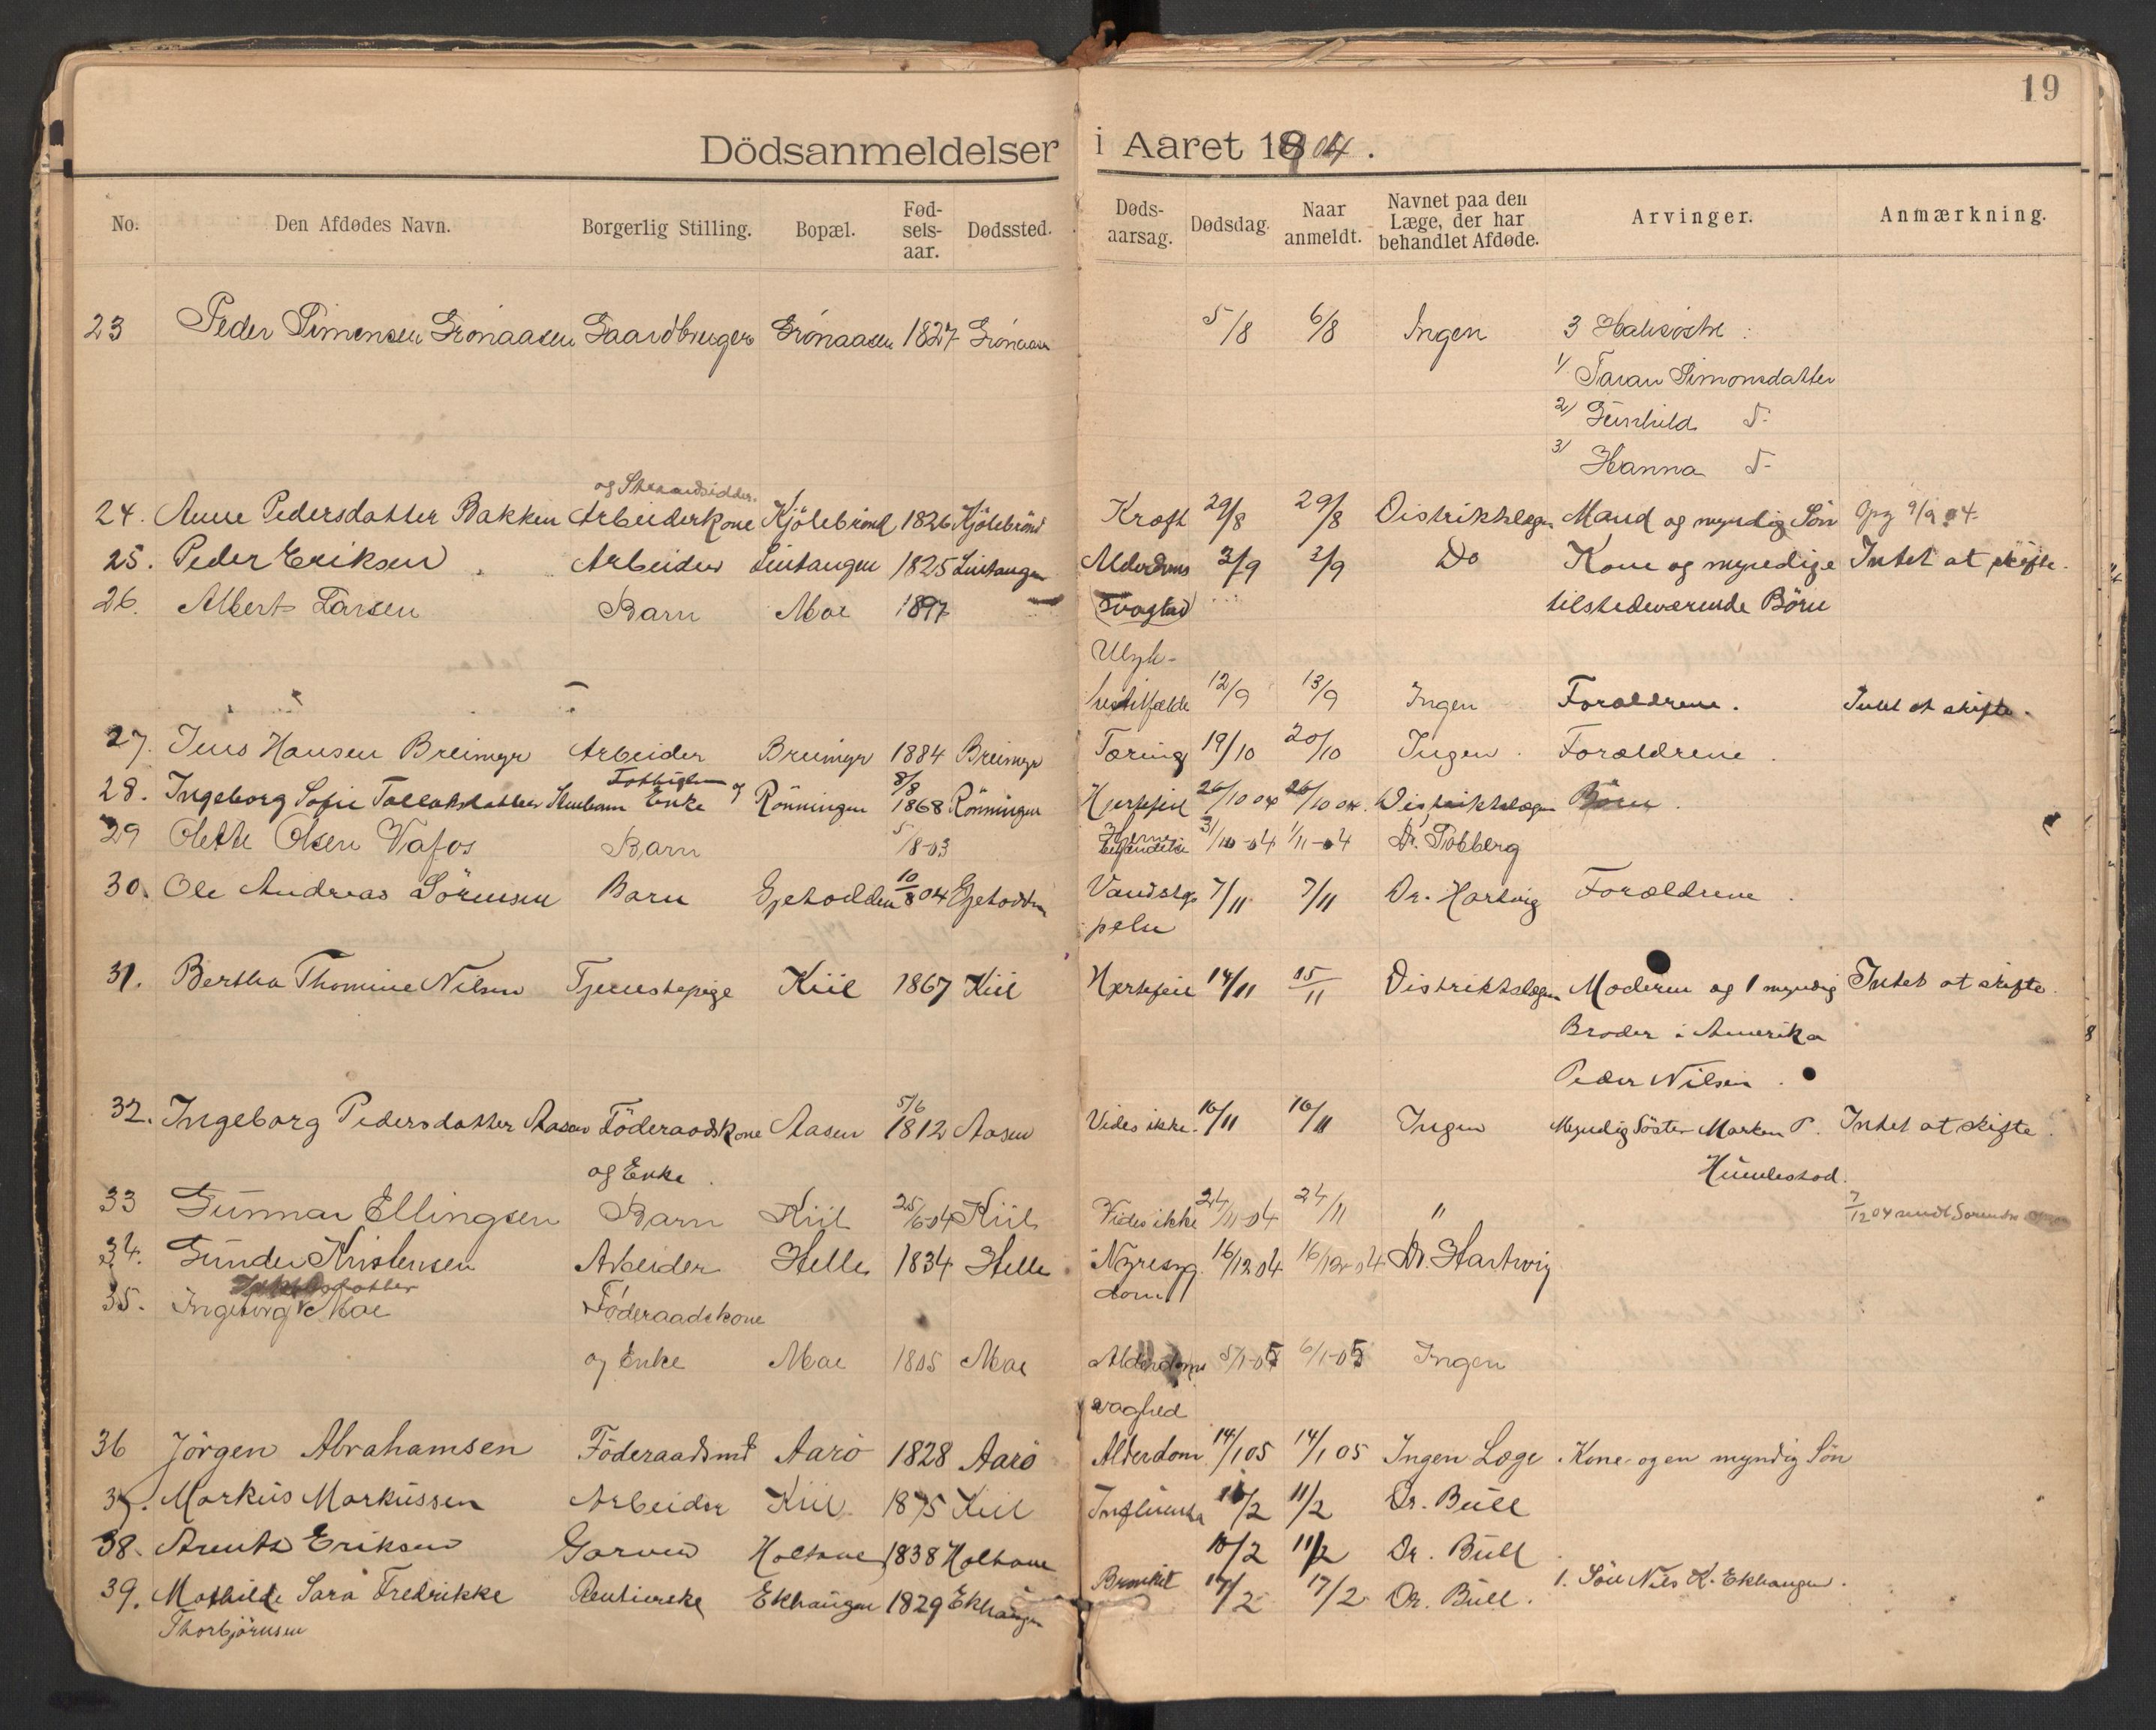 19
Dödsanmeldelser i Aaret 1904.
No. Den Afdødes Navn. Borgerlig Stilling. Bopæl. Fødselsaar. Dødssted. Dødsaarsag. Dødsdag. Naar anmeldt. Navnet paa den Læge, der har behandlet Afdøde. Arvinger. Anmærkning.
23 Peder Simonsen Grönaasen Gaardbruger Grönaasen 1827 Grönaasen 5/8 6/8 Ingen 3 Halvsöstre :
1/ Taran Simonsdatter
2/ Gunhild S-
3/ Hanna S-
og Strandsidder
24. Anne Pedersdatter Bakken Arbeiderkone Kjölebrönd 1826 Kjölebrönd Kræft 29/8 29/8 Distriktslægen Mand og myndig Sön Opg 9/9 04.
25. Peder Eriksen Arbeider Lintangen 1825 Lintangen Alderdoms 3/9 3/9 Do Kone og myndige Intet at skifte.
26. Albert Larsen Barn Moe 1897 svaghed tilstedeværende Börn
Ulyk-
kestilfælde 12/9 13/9 Ingen Forældrene. Intet at skifte.
27. Jens Hansen Breimyr Arbeider Breimyr 1884 Breimyr Tæring 19/10 20/10 Ingen. Forældrene.
28. Ingeborg Sofie Tallaksdatter Fattiglem og Enke Rönningen 8/8 1868 Rönningen Hjertefeil 26/10 04 26/10 04. Distriktslægen Börn.
29 Olette Olsen Vafos Barn 5/8-03 Hjerne 31/10-04 1/11-04 Dr.
30. Ole Andreas Sörensen Barn Barn 10/8 04 Vandskop 7/11 7/11 Dr. Hartvig Forældrene.
pelse
31. Bertha Thomine Nilsen Tjenestepige Kiil 1867 Kiil Hjertefeil 14/11 15/11 Distriktslægen Moderen og 1 myndig Intet at skifte.
Broder i Amerika
Peder Nilsen.
32. Ingeborg Pedersdatter Aasen Föderaadskone Aasen 5/6 1812 Aasen Vides ikke. 16/11 16/11 Ingen Myndig Söster Marken P. Intet at skifte.
og Enke. Humlestad.
33 Gunnar Ellingsen Barn Kiil 25/6 04 Kiil Vides ikke 24/11-04 24/11 " 7/12 04 sendt Sorenskr
34. Gunder Kristensen Arbeider Helle 1834 Helle Nyresyg 16/12 04 16/12 04 Dr. Hartvig
dom
35. Ingeborg Moe Föderaadskone
og Enke Moe 1805 Moe Alderdoms 5/1-05 6/1-05 Ingen
svaghed
36 Jörgen Abrahamsen Föderaadsmd Aarö 1828 Aarö Alderdom 14/1 05 14/1 05 Ingen Læge. Kone og en myndig Sön
37. Markus Markussen Arbeider Kiil 1875 Kiil Influensa 10/2 11/2 Dr. Bull
38. Arents Eriksen Garver Holtane 1838 Holtane 10/2 11/2 Dr. Bull
39. Mathilde Sara Fredrikke Rentierske Ekhaugen 1829 Ekhaugen Bronkit 17/2 17/2 Dr. Bull. 1. Sön Nils K. Ekhaugen.
Thorbjörnsen